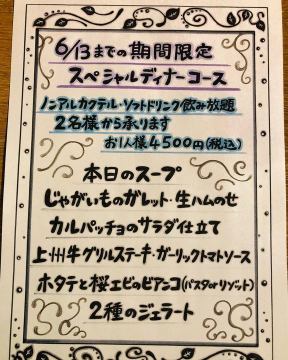 6/13までの期間限定
スペシャルディナーコース
ノンアルカクテル・ソフトドリンク飲み放題
2名様から承ります
お1人様4500円(税込)
本日のスープ
じゃがいものガレット・生ハムのせ
カルパッチョのサラダ仕立て
上州牛グリルステーキ・ガーリックトマトソース
ホタテと桜エビのビアンコ(パスタorリゾット)
2種のジェラート